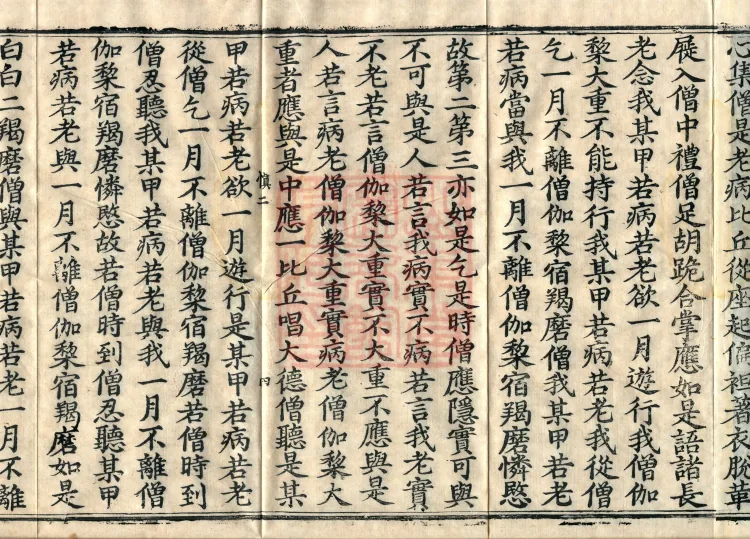 心集僧是老病比丘從座起偏袒著衣脫革
屣入僧中禮僧足胡跪合掌應如是語諸長
老念我某甲若病若老欲一月遊行我僧伽
黎大重不能持行我某甲若病若老我從僧
乞一月不離僧伽黎宿羯磨僧我某甲若老
若病當與我一月不離僧伽黎宿羯磨憐愍
故第二第三亦如是乞是時僧應隱實可與
不可與是人若言我病實不病若言我老實
不老若言僧伽黎大重實不大重不應與是
人若言病老僧伽黎大重實病老僧伽黎大
重者應與是中應一比丘唱大德僧聽是某
慎二
四
甲若病若老欲一月遊行是某甲若病若老
從僧乞一月不離僧伽黎宿羯磨若僧時到
僧忍聽我某甲若病若老與我一月不離僧
伽黎宿羯磨憐愍故若僧時到僧忍聽某甲
若病若老與一月不離僧伽黎宿羯磨如是
白白二羯磨僧與某甲若病若老一月不離